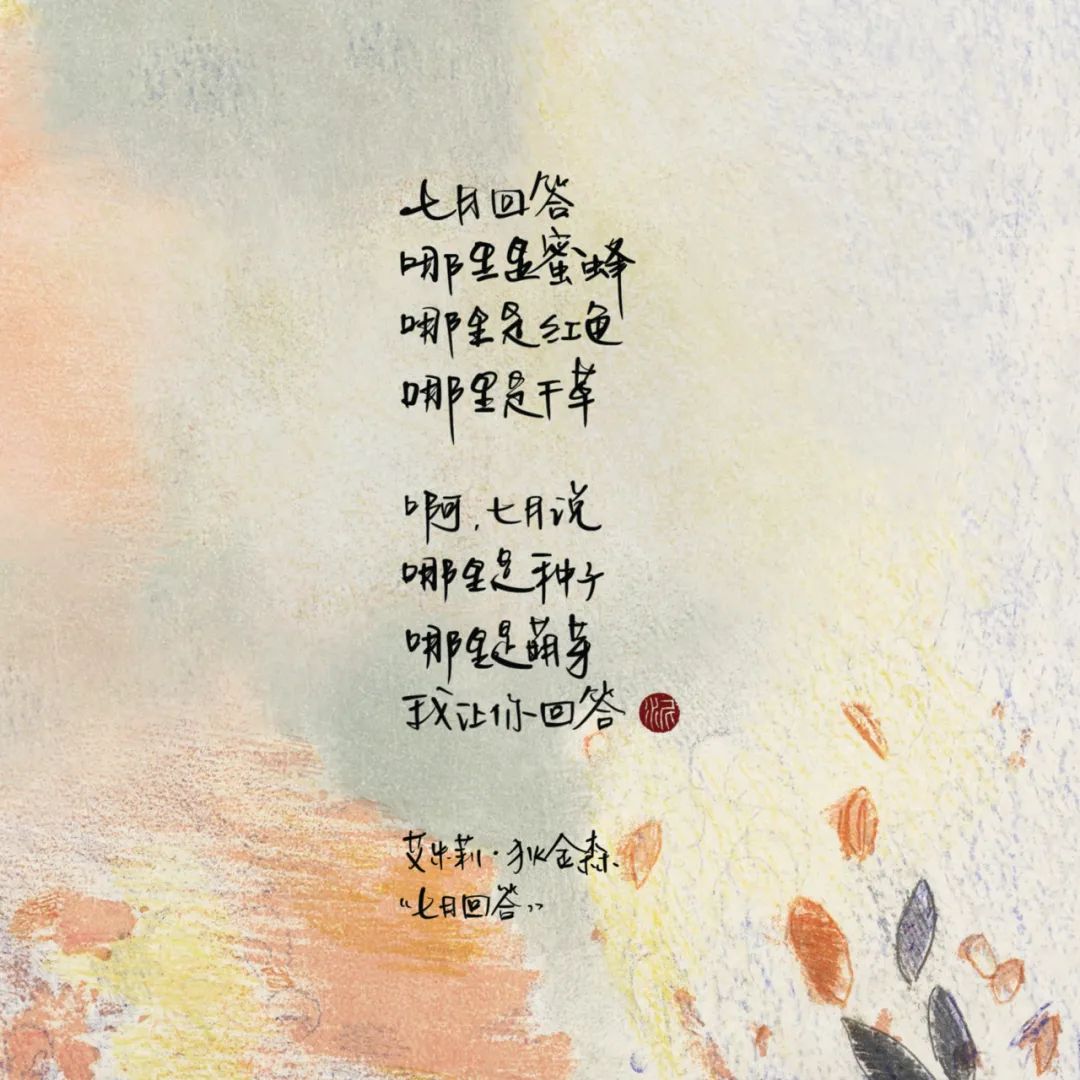 七月回答
哪里是蜜蜂
哪里是红色
哪里是干草
啊,七月说
哪里是种子
哪里是萌芽
我让你回答
艾米莉·狄金森
“七月回答”